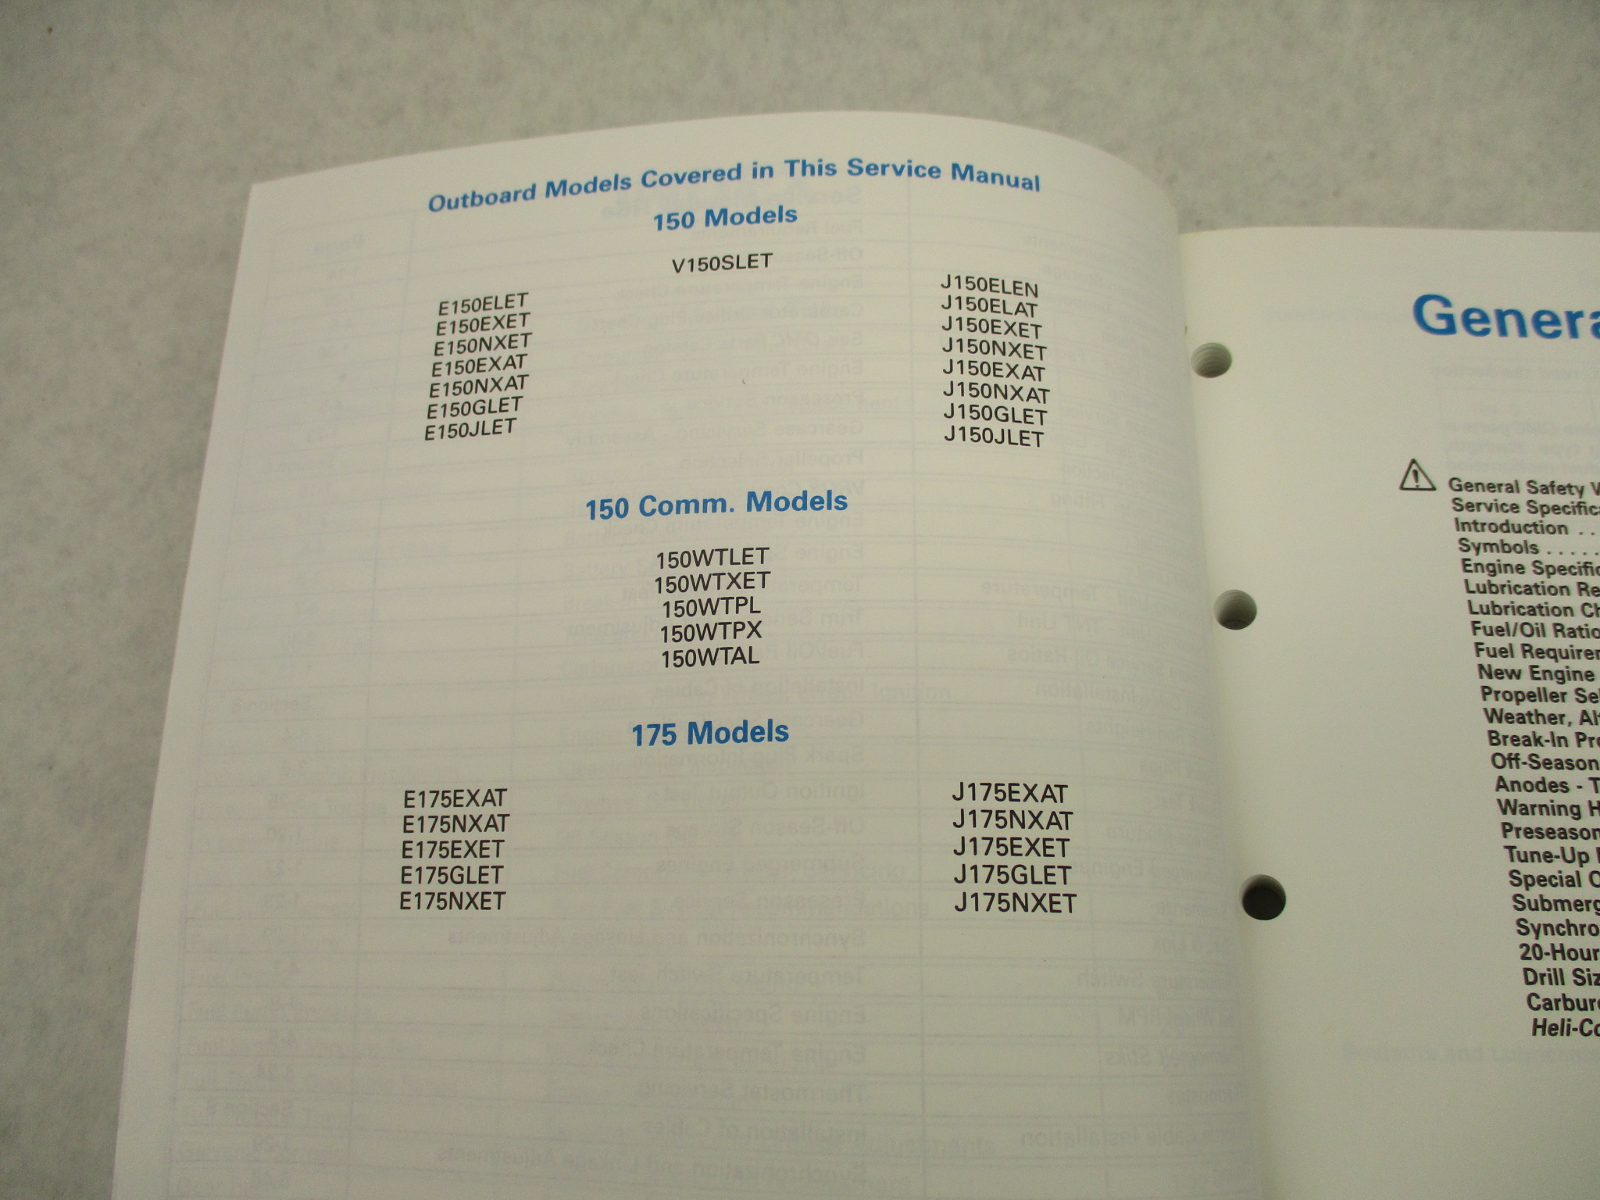 Outboard Models Covered in This Service Manual
150 Models
V150SLET
E150ELET
E150EXET
E150NXET
E150EXAT
E150NXAT
E150GLET
E150JLET
J150ELEN
J150ELAT
J150EXET
J150NXET
J150EXAT
J150NXAT
J150GLET
J150JLET
150 Comm. Models
150WTLET
150WTXET
150WTPL
150WTPX
150WTAL
175 Models
E175EXAT
E175NXAT
E175EXET
E175GLET
E175NXET
J175EXAT
J175NXAT
J175EXET
J175GLET
J175NXET
Genera
General Safety
Service Specific
Introduction . .
Symbols . . . . .
Engine Specific
Lubrication Re
Lubrication Ch
Fuel/Oil Ratio
Fuel Requirer
New Engine
Propeller Sel
Weather, Alt
Break-In Pro
Off-Season
Anodes - T
Warning H
Preseason
Tune-Up
Special
Submerg
Synchro
20-Hour
Drill Siz
Carbure
Heli-Co